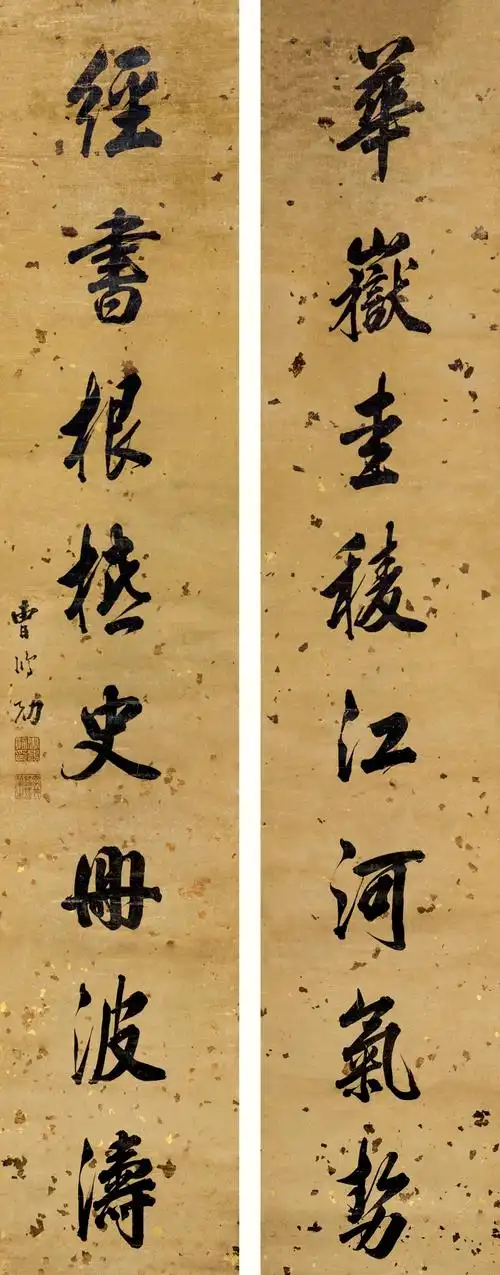 華嶽圭稜江河氣勢
經書根柢史冊波濤
曹鴻勛